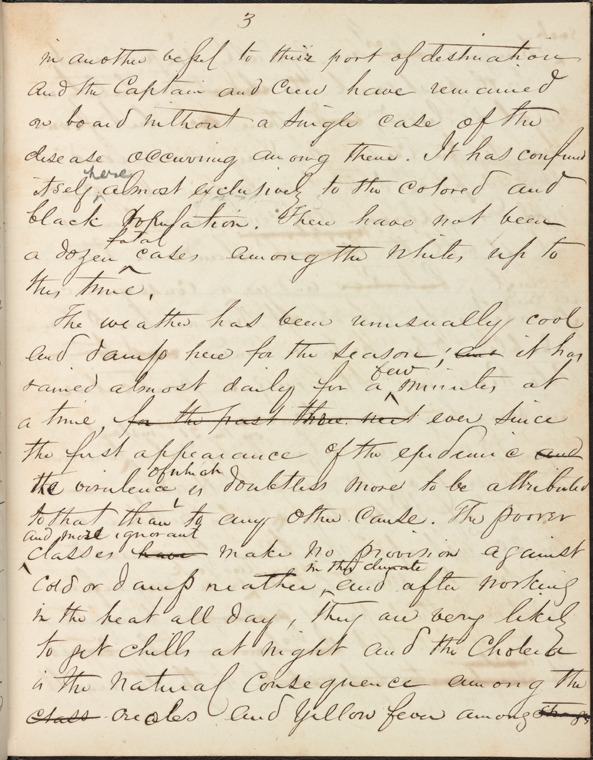 3
in another vessel to their port of destination
and the Captain and Crew have remained
on board without a single case of the
disease occurring among them. It has confined
here
itself almost exclusively to the colored and
black Population. There have not been
fatal
a dozen cases among the whites, up to
this time.
The weather has been unusually cool
and damp here for the season; and it has
few
rained almost daily for a minutes at
a time, for the past three ever since
the first appearance of the epidemic and
of which
the virulence is doubtless more to be attributed
to that than to any other cause. The poorer
and more ignorant
classes have make no provision against
in this climate
cold or damp weather, and after working
in the heat all day, they are very likely
to get chills at night and the Cholera
is the natural consequence among the
class creoles and Yellow fever among